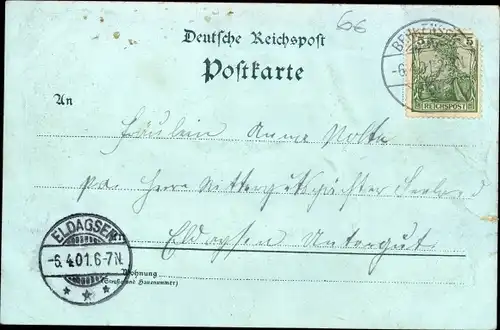 66
Deutsche Reichspost
Postkarte
5 5
REICHSPOST
-6.
An
Fräulein Anna Nolte
Herrn Rittergutspächter
Eldagsen Untergut
ELDAGSEN
-6.4.01.6-7N.
Wohnung
(Straße und Hausnummer)